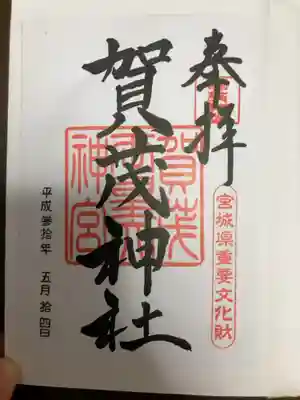 奉拝
宮城県重要文化財
賀茂神社
賀茂
神宮
平成参拾年 五月拾四日